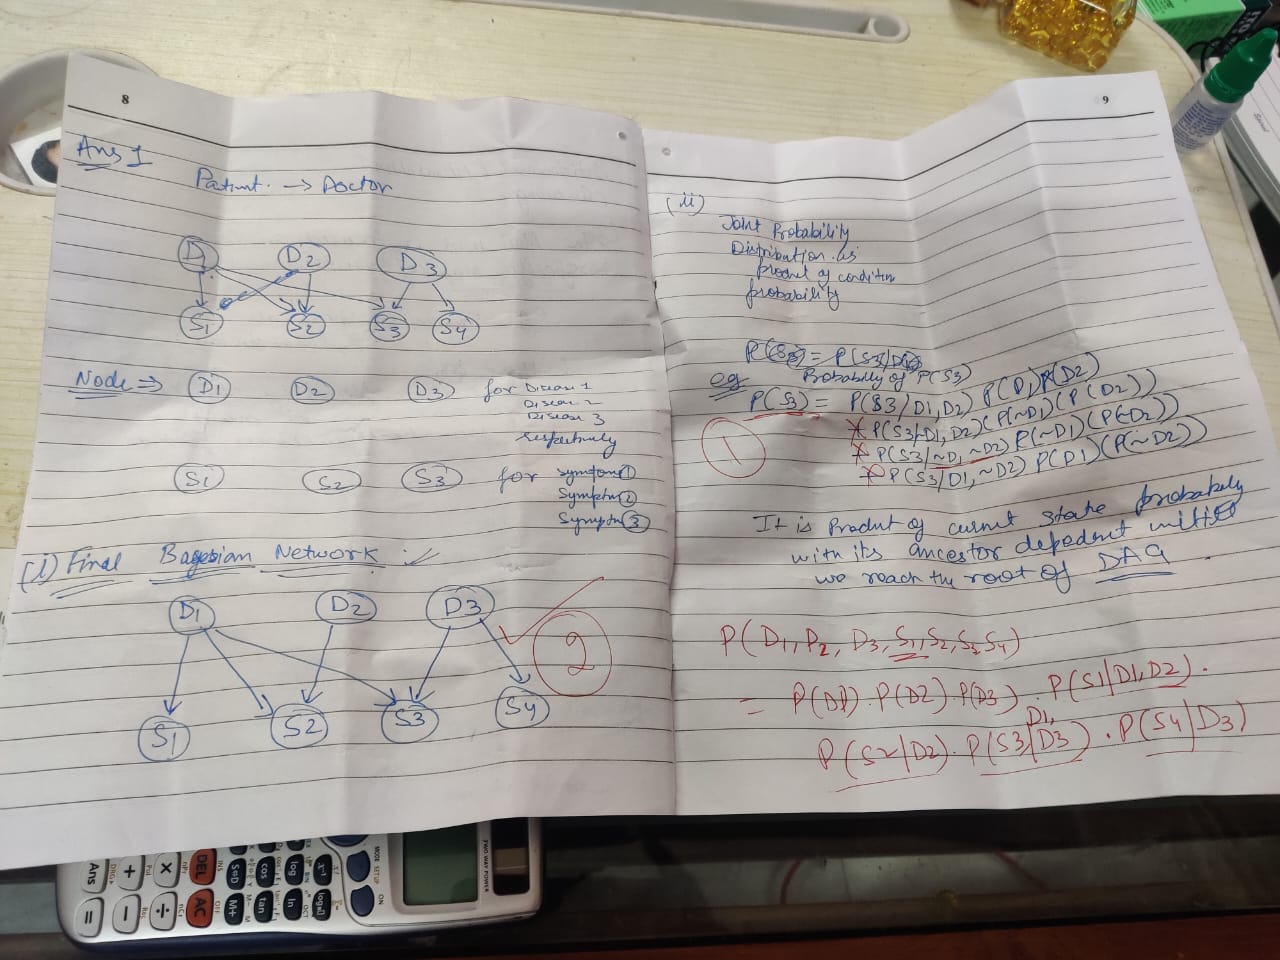 8
Ans 1
Patient. → Doctor
D1 D2 D3
S1 S2 S3 S4
Node ⇒ D1 D2 D3 for Disease 1
Disease 2
Disease 3
respectively
S1 S2 S3 for symptom ①
Symptm ②
Symptm ③
(i) Final Bayesian Network :
D1 D2 D3
2
S1 S2 S3 S4
9
(ii)
Joint Probability
Distribution as
product of condition
probability
Probability of P(S3)
eg P(S3) = P(S3/D1,D2) P(D1)P(D2)
P(S3/~D1, D2)(P(~D1)(P(D2))
P(S3/~D1 ~D2) P(~D1)(P(~D2))
P(S3/D1,~D2) P(D1)(P(~D2))
1
It is Product of current state probability
with its ancestor dependent until
we reach the root of DAG.
P(D1, D2, D3, S1, S2, S3 S4)
= P(D1).P(D2).P(D3).P(S1|D1,D2).
P(S2|D2).P(S3|D1,D3).P(S4|D3)
SHIFT
MODE SETUP
ON
TWO WAY POWER
Ans
DEL
AC
S⇔D
M+
cos
tan
log
ln
+
−
×
÷
=